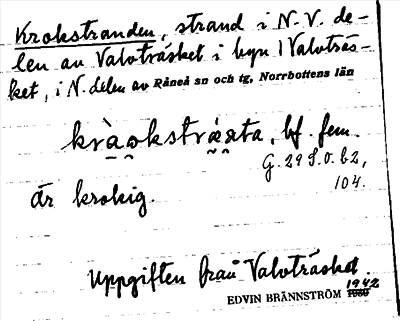 Krokstranden, strand i N.V. de-
len av Valvträsket i byn Valvträs-
ket, i N. delen av Råneå sn och tg, Norrbottens län
bf. fem.
G. 29 S. o. b2,
104.
Är krokig.
Uppgiften från Valvträsket.
1942
EDVIN BRÄNNSTRÖM